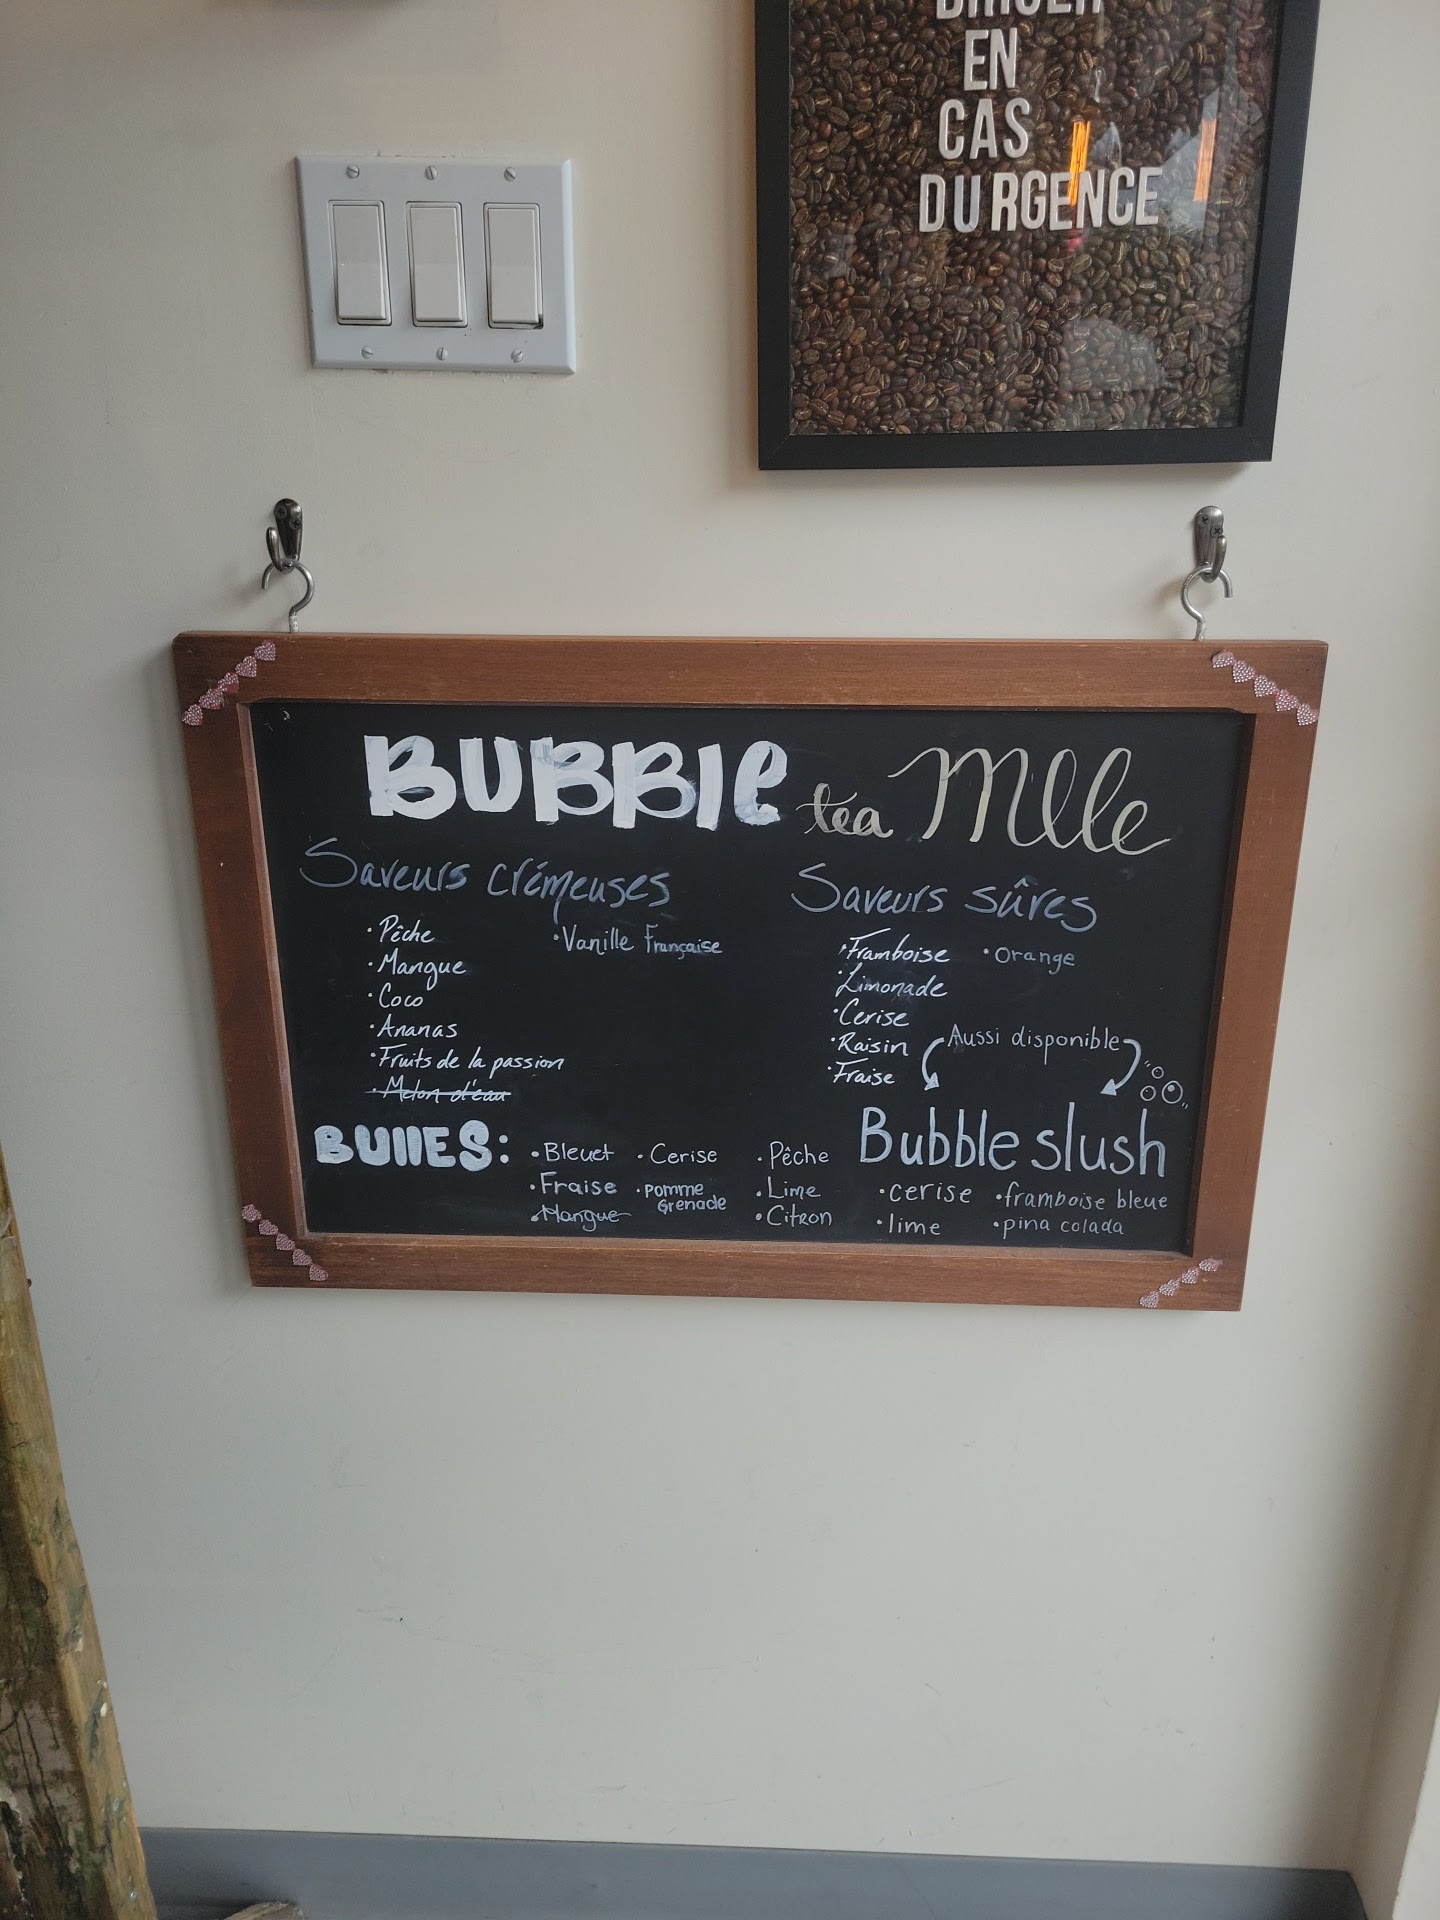 EN
CAS
DURGENCE
BUBBLE tea Mlle
Saveurs crémeuses
• Pêche
• Mangue
• Coco
• Ananas
• Fruits de la passion
• Melon d'eau
• Vanille Française
Saveurs sûres
• Framboise
• Limonade
• Cerise
• Raisin
• Fraise
• Orange
Aussi disponible
BULLES:
• Bleuet
• Fraise
• Mangue
• Cerise
• pomme
Grenade
• Pêche
• Lime
• Citron
Bubble slush
• cerise
• lime
• framboise bleue
• pina colada